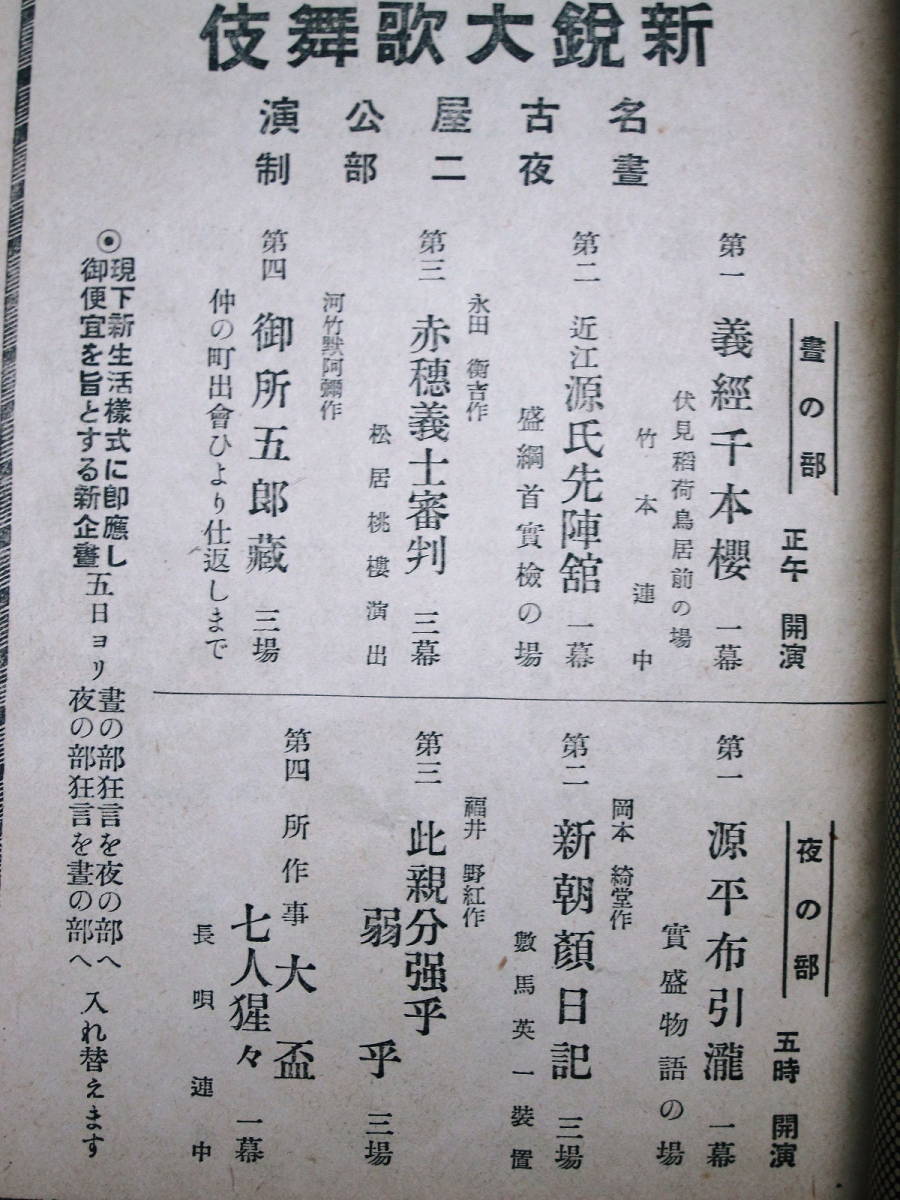 新鋭大歌舞伎
名古屋公演
晝夜二部制
晝の部
正午 開演
第一 義經千本櫻 一幕
伏見稻荷鳥居前の場
竹本連中
第二 近江源氏先陣舘 一幕
盛綱首實檢の場
永田 衡吉作
第三 赤穗義士審判 三幕
松居桃樓演出
河竹默阿彌作
第四 御所五郎藏 三場
仲の町出會ひより仕返しまで
夜の部
五時 開演
第一 源平布引瀧 一幕
實盛物語の場
岡本 綺堂作
第二 新朝顏日記 三場
數馬英一裝置
福井 野紅作
第三 此親分强乎
弱乎 三場
第四 所作事 大盃
七人猩々 一幕
長唄連中
◉現下新生活樣式に卽應し
御便宜を旨とする新企畫
五日ヨリ
晝の部狂言を夜の部へ
夜の部狂言を晝の部へ
入れ替えます